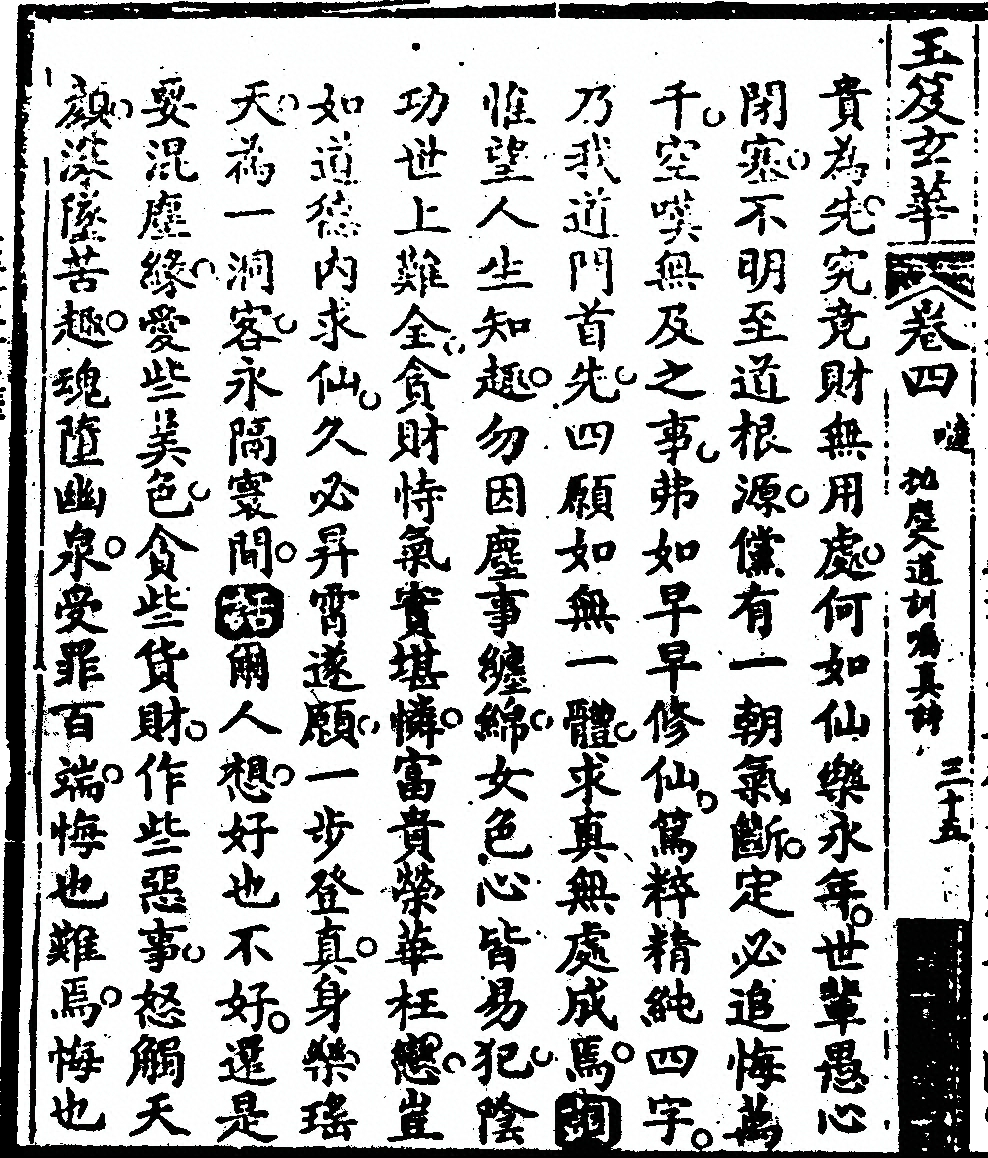 玉笈玄華 卷四 噠 拋塵入道訓喝真詩 三十五
貴為先究竟財無用處何如仙樂永年世輩愚心
閉塞不明至道根源儻有一朝氣斷定必追悔萬
千空嘆無及之事弗如早早修仙篤粹精純四字
乃我道門首先四願如無一體求真無處成焉詞
惟望人生知趣勿因塵事纏綿女色心皆易犯陰
功世上難全貪財恃氣實堪憐富貴榮華枉戀豈
如道德內求仙久必昇霄遂願一步登真身樂瑤
天為一洞客永隔寰間話爾人想好也不好還是
要混塵緣愛些美色貪些貨財作些惡事怒觸天
顏深墜苦趣魂墮幽泉受罪百端悔也難焉悔也